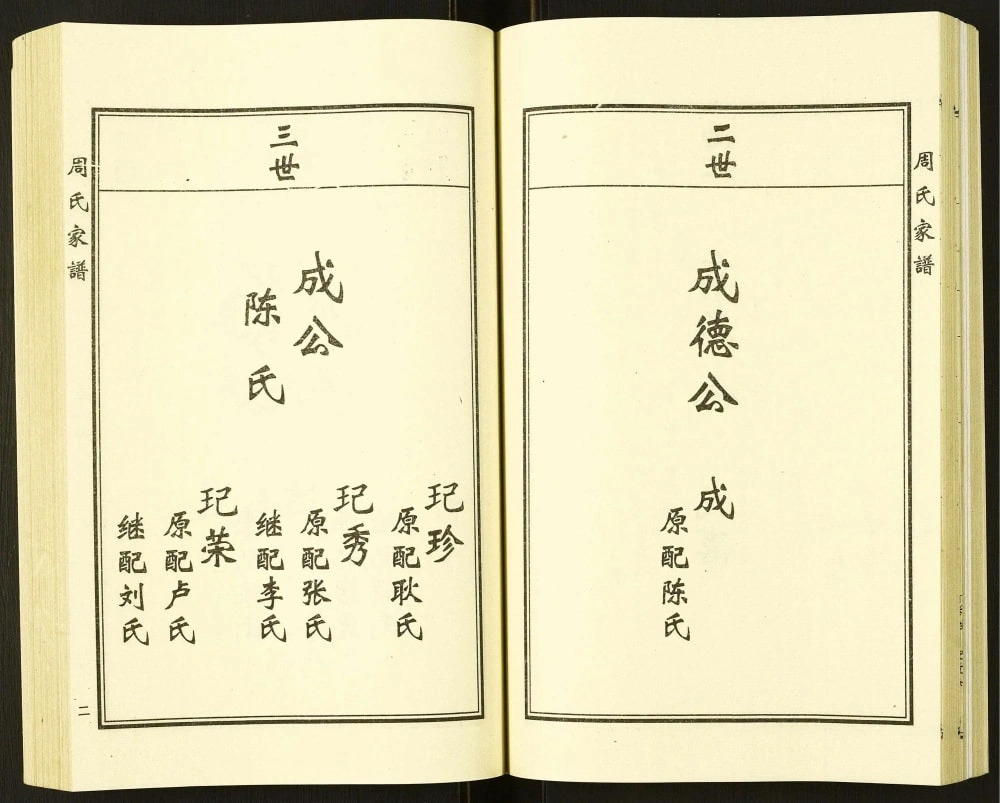 周氏家譜
二世
成德公
成
原配陈氏
三世
成公
陈氏
玘珍
原配耿氏
玘秀
原配张氏
继配李氏
玘荣
原配卢氏
继配刘氏
周氏家譜
二